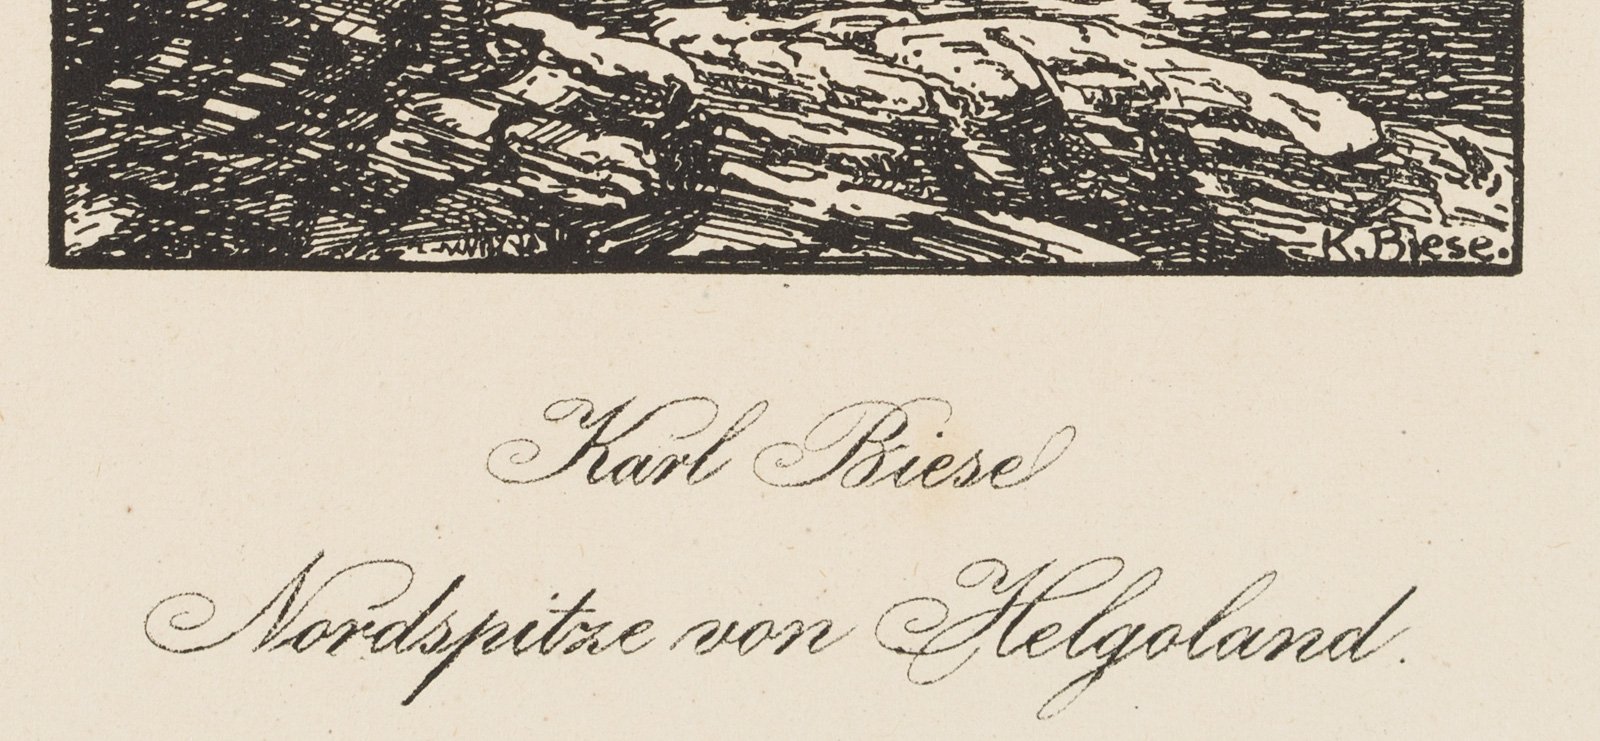 K. Biese.
Karl Biese
Nordspitze von Helgoland.